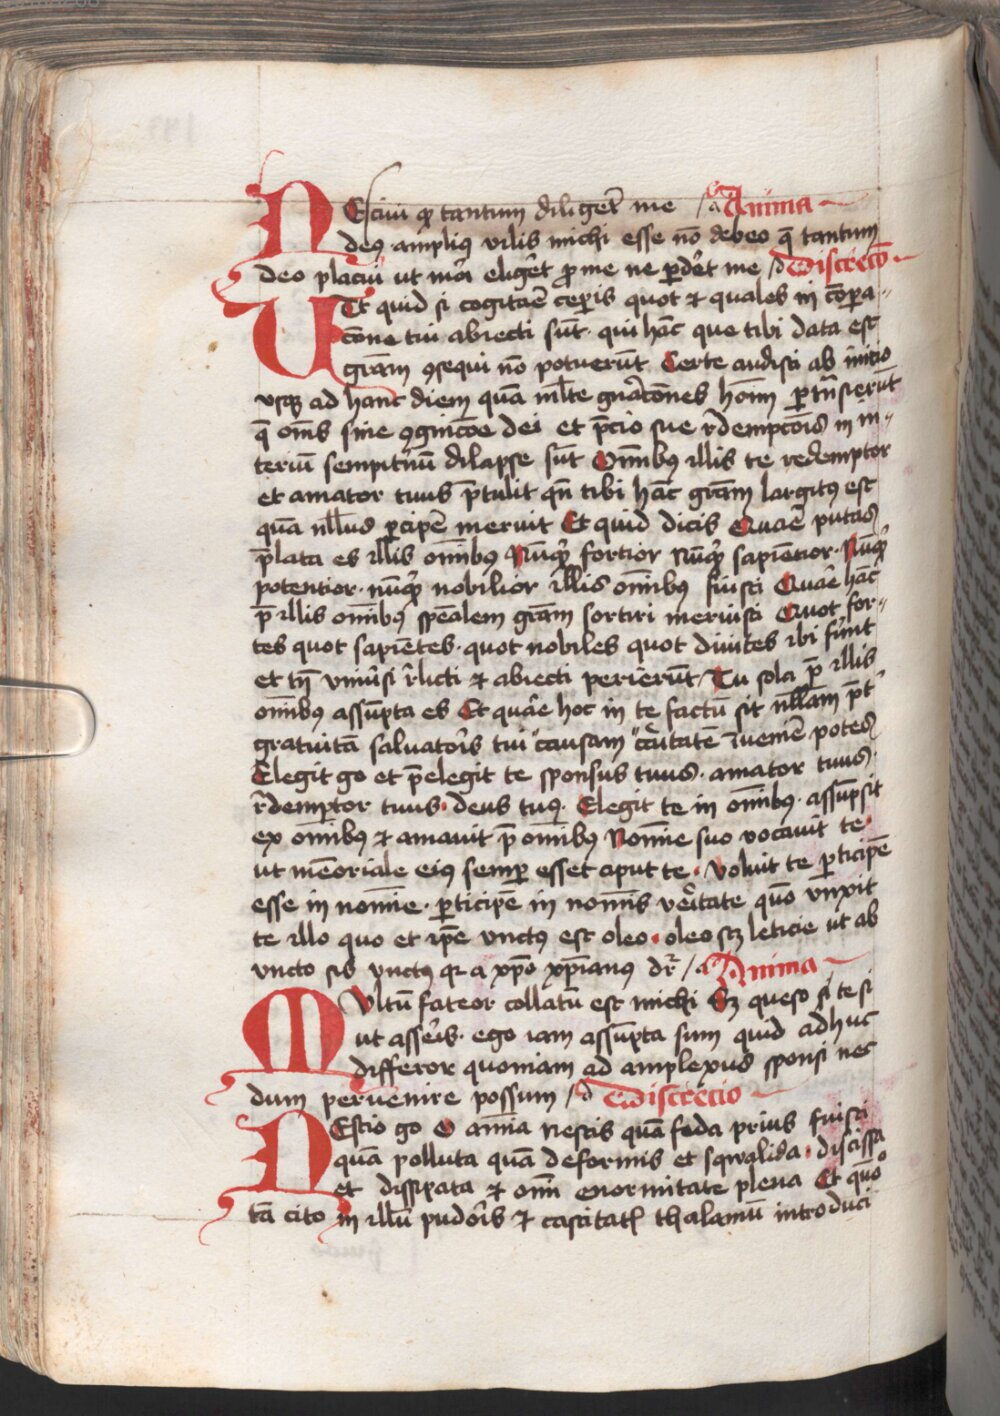 NEsciui qꝫ tantum diligeret me /a Anima
deꝰ ampliꝰ vilis michi esse nō debeo q̄ tantum
deo placui ut mori eligeret ꝓ me ne ꝑderet me /d Discrecō
UT quid si cogitare ceperis quot et quales in cōpara-
cōne tui abiecti sūt· qui hāc que tibi data est
grām ꝯsequi nō potuerūt Certe audisti ab inicio
vsqꝫ ad hanc diem quā ml̄te gn̄acōnes hoīm ꝑtn̄sierūt
q̄ om̄s sine ꝯgnicōe dei et p̄cio sue r̄dempcōis in in-
teritū sempitn̄ū dilapse sūt Om̄ibꝰ illis te redemptor
et amator tuus p̄tulit qn̄ tibi hāc grām largitꝰ est
quā nl̄lus ꝑcipe meruit Et quid dicis Quare putas
p̄lata es illis om̄ibꝰ Nūqꝫ fortior nūqꝫ sapiencior· Nūqꝫ
potentior· nūqꝫ nobilior illis om̄ibꝰ fuisti Quare hāc
p̄ illis om̄ibꝰ sp̄ealem grām sortiri meruisti Quot for-
tes quot sapiētes· quot nobiles quot diuites ibi fūnt
et tn̄ vniuersi r̄licti et abiecti perierūt Tu sola p̄ illis
om̄ibꝰ assūpta es Et quare hoc in te factū sit nl̄lam p̄t
gratuitā saluatoris tui "causam "cāritatē īuenire potes
Elegit go et p̄elegit te sponsus tuus· amator tuus·
r̄demptor tuus· deus tuꝰ· Elegit te in om̄ibꝰ· assūpsit
ex om̄ibꝰ et amauit p̄ om̄ibꝰ Nomīe suo vocauit te·
ut mēoriale eiꝰ semꝑ esset aput te· Voluit te ꝑticipē
esse in nomīe· ꝑticipē in nomīs vēitate quō vnxit
te illo quo et ip̄e vnctꝰ est oleo· oleo scꝫ leticie ut ab
vncto sis vnctꝰ qr a xp̄o xp̄ianꝰ dr̄ /a Anima
MVltū fateor collatū est michi Sꝫ queso si te si
ut asseris· ego iam assūpta sum quid adhuc
differor quoniam ad amplexus sponsi nec
dum peruenire possum /d Discrecio
NEscio go O aīma nescis quā feda prius fuisti
quā polluta quā deformis et sqwalida· discissa
et dissipata et om̄i enormitate plena Et quō
tā cito in illū pudoris et castitatꝭ thalamū introduci